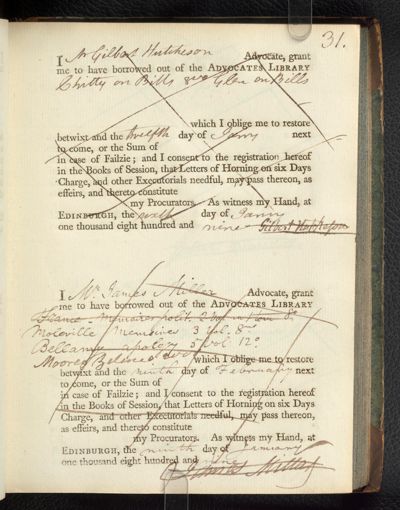 31.
I Mr Gilbert Hutcheson Advocate, grant
me to have borrowed out of the ADVOCATES LIBRARY
Chitty on Bills 8vo Glen on Bills
which I oblige me to restore
betwixt and the twelfth day of Jany next
to come, or the Sum of
in case of Failzie; and I consent to the registration hereof
in the Books of Session, that Letters of Horning on six Days
Charge, and other Executorials needful, may pass thereon, as
effeirs, and thereto constitute
my Procurators. As witness my Hand, at
EDINBURGH, the day of Jany
one thousand eight hundred and nine Gilbert Hutcheson
I Mr James Miller Advocate, grant
me to have borrowed out of the ADVOCATES LIBRARY
France Memoires polit. 2 8o
Moleville Memoires 3 vol. 8vo
Bellamy apology 5 vol 12o
Moores which I oblige me to restore
betwixt and the ninth day of February next
to come, or the Sum of
in case of Failzie; and I consent to the registration hereof
in the Books of Session, that Letters of Horning on six Days
Charge, and other Executorials needful, may pass thereon,
as effeirs, and thereto constitute
my Procurators. As witness my Hand, at
EDINBURGH, the ninth day of January
one thousand eight hundred and nine
James Miller